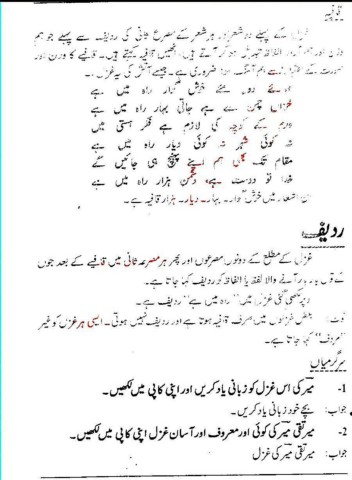 قافیہ
غزل کے پہلے دو شعر ہر شعر کے مصرع ثانی کی ردیف سے پہلے جو ہم
آواز الفاظ تبدیل ہو کر آتے ہیں، انھیں قافیہ کہتے ہیں۔ قافیے کا وزن اور
صورت کے سے ہم آہنگ ہونا ضروری ہے۔ جیسے آتش کی یہ غزل۔
ہوائے دور مئے خوش گوار راہ میں ہے
خزاں چمن سے ہے جاتی بہار راہ میں ہے
عدم کے کوچ کی لازم ہے فکر ہستی میں
نہ کوئی شہر نہ کوئی دیار راہ میں ہے
مقام تک بھی ہم اپنے پہنچ ہی جائیں گے
خدا تو دوست ہے، دشمن ہزار راہ میں ہے
ان اشعار میں خوش گوار۔ بہار۔ دیار۔ ہزار قافیہ ہے۔
ردیف
غزل کے مطلع کے دونوں مصرعوں اور پھر ہر مصرعہ ثانی میں قافیے کے بعد جوں
کے توں بار بار آنے والا لفظ یا الفاظ کو ردیف کہا جاتا ہے۔
اوپر لکھی گئی غزل میں "راہ میں ہے" ردیف ہے۔
نوٹ: بعض غزلوں میں صرف قافیہ ہوتا ہے اور ردیف نہیں ہوتی۔ ایسی ہر غزل کو غیر
"مردف" کہا جاتا ہے۔
سرگرمیاں
1- میر کی اس غزل کو زبانی یاد کریں اور اپنی کاپی میں لکھیں۔
جواب: بچے خود زبانی یاد کریں۔
2- میر تقی میر کی کوئی اور معروف اور آسان غزل اپنی کاپی میں لکھیں۔
جواب: میر تقی میر کی غزل